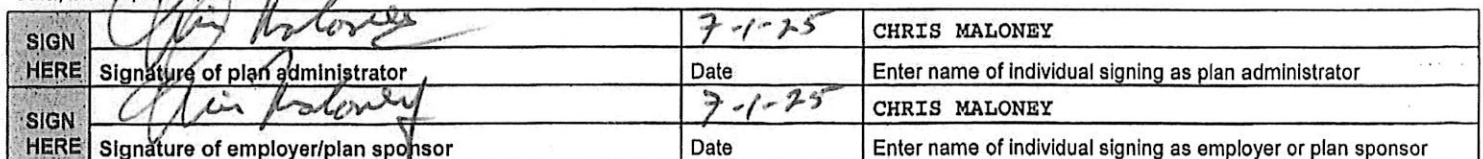 SIGN Chris Maloney 7-1-25 CHRIS MALONEY
HERE Signature of plan administrator Date Enter name of individual signing as plan administrator
SIGN Chris Maloney 7-1-25 CHRIS MALONEY
HERE Signature of employer/plan sponsor Date Enter name of individual signing as employer or plan sponsor